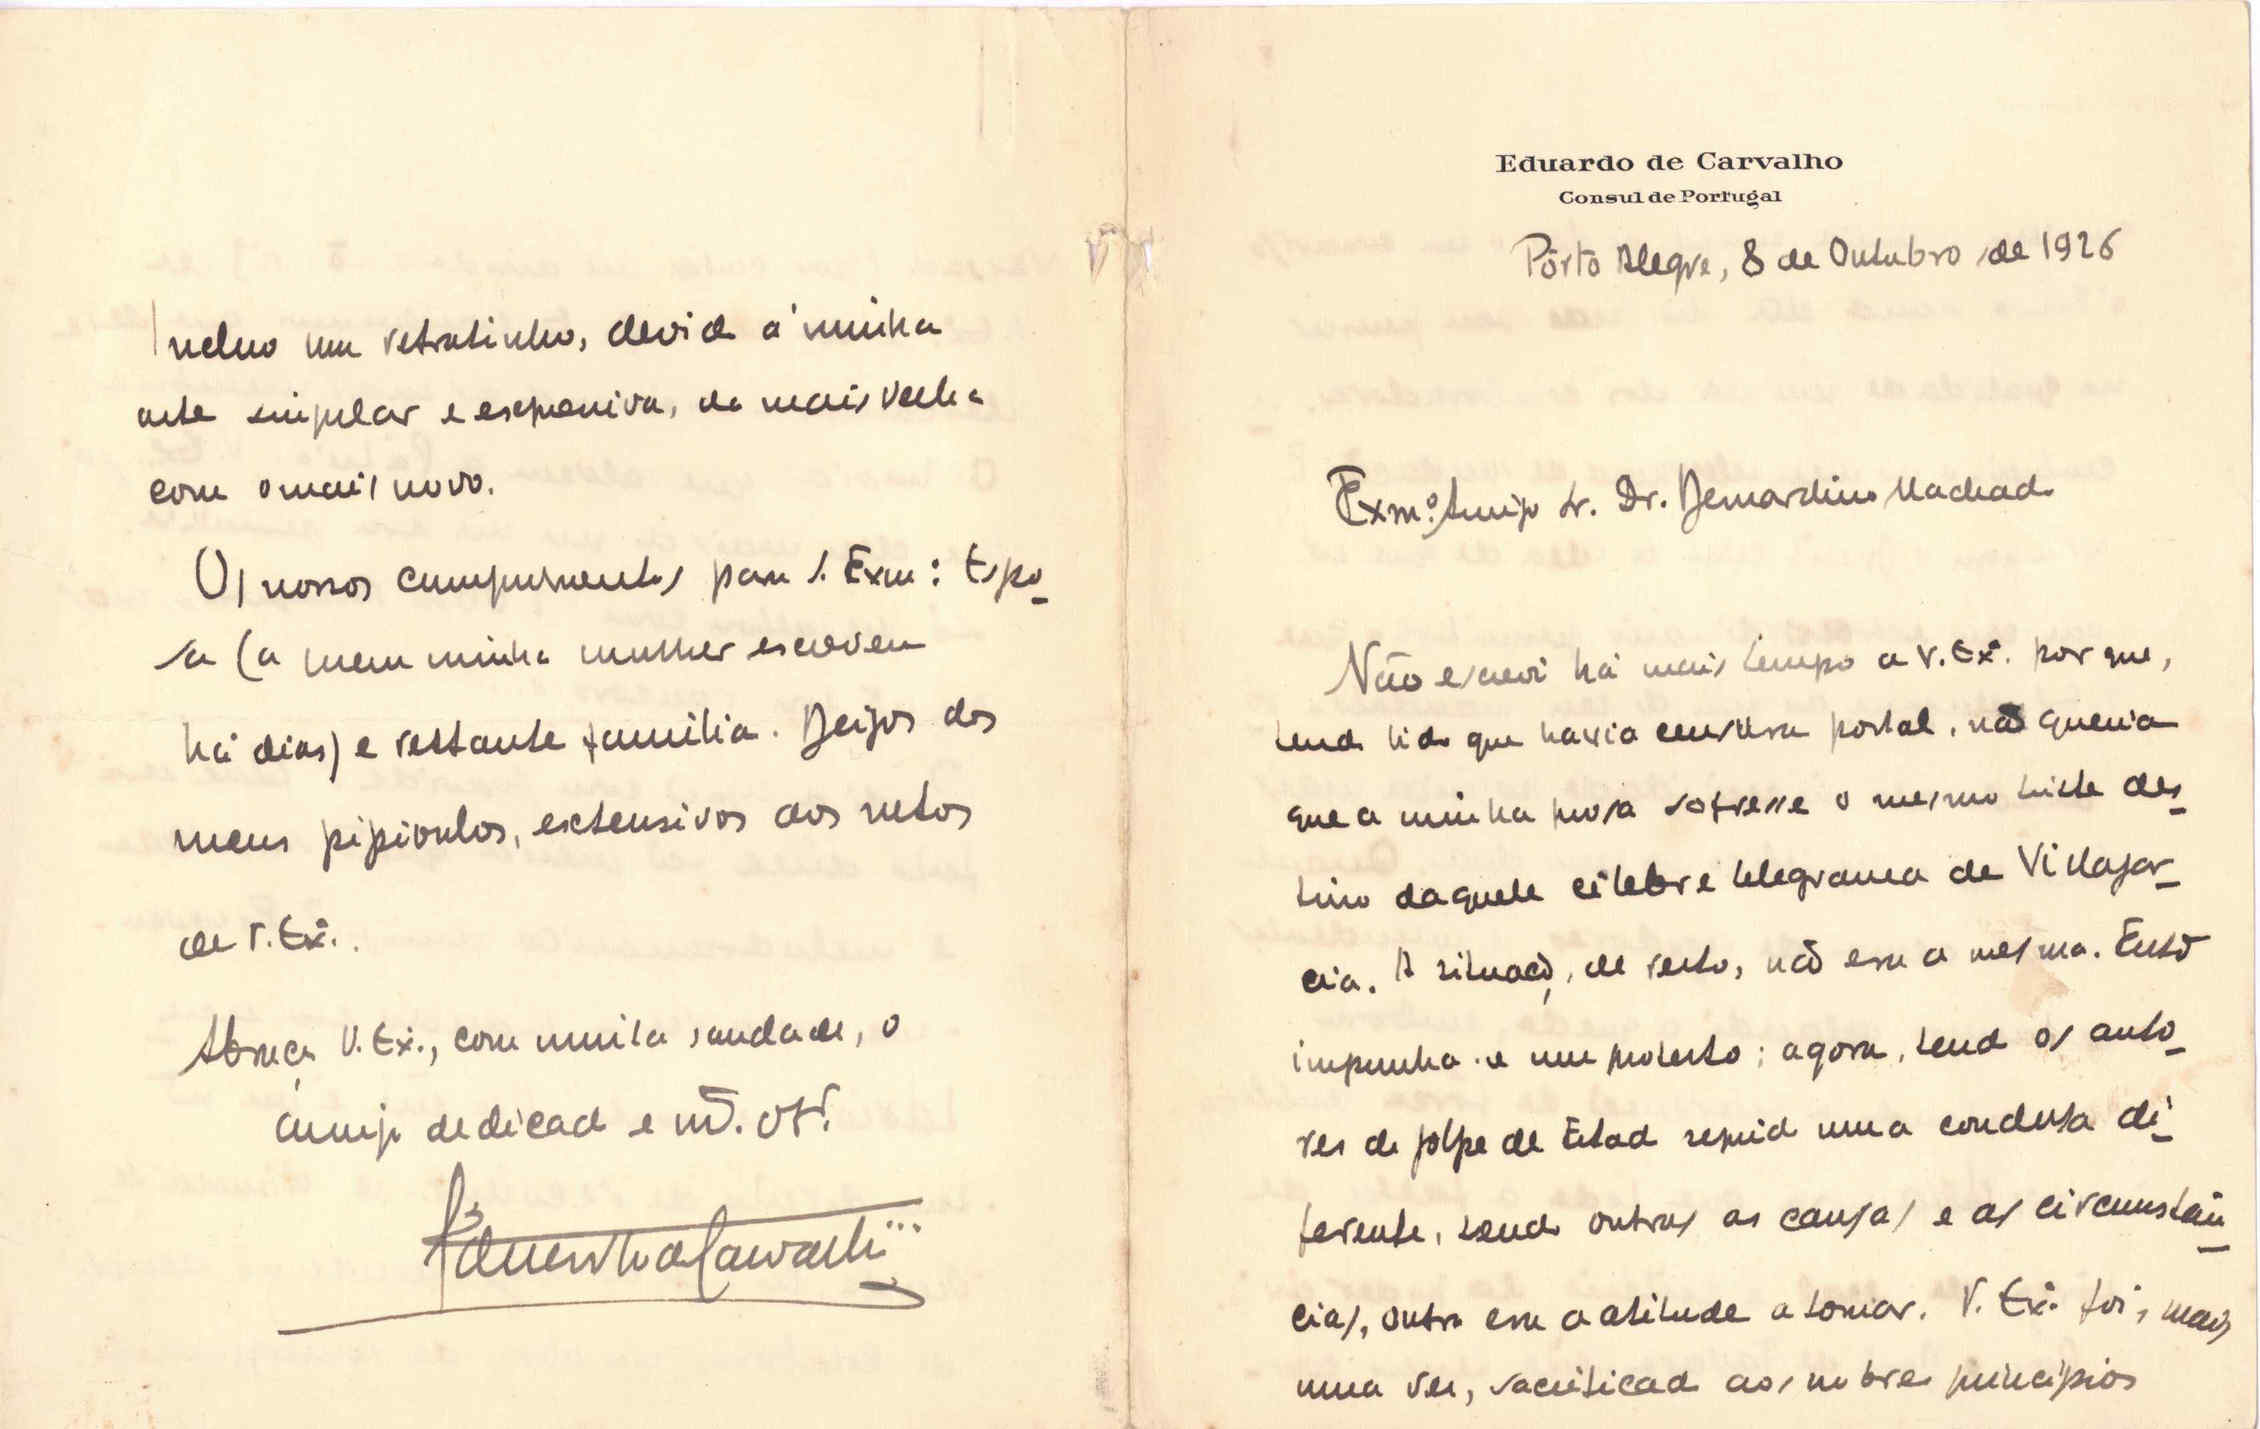 Eduardo de Carvalho
Consul de Portugal
Pôrto Alegre, 8 de Outubro de 1926
Exmº. Amigo Sr. Dr. Bernardino Machado
Não escrevi há mais tempo a V. Exª. porque,
tendo lido que havia censura postal, não queria
que a minha prosa sofresse o mesmo triste des-
tino daquele célebre telegrama de Villagar-
cia. A situação, de resto, não era a mesma. Então
impunha-se um protesto; agora, tendo os auto-
res do golpe de Estado seguido uma conduta di-
ferente, sendo outras as causas e as circunstân-
cias, outra era a atitude a tomar. V. Exª. foi, mais
uma vez, sacrificado aos nobres princípios
Incluo um retratinho, devido á minha
arte singular e expressiva, da mais velha
com o mais novo.
Os nossos cumprimentos para S. Exmª. Espo-
sa (a quem minha mulher escreveu
há dias) e restante família. Beijos dos
meus pipiolos, extensivos aos netos
de V. Exª..
Abraça V. Exª., com muita saudade, o
amigo dedicado e mº. obº.
Eduardo de Carvalho